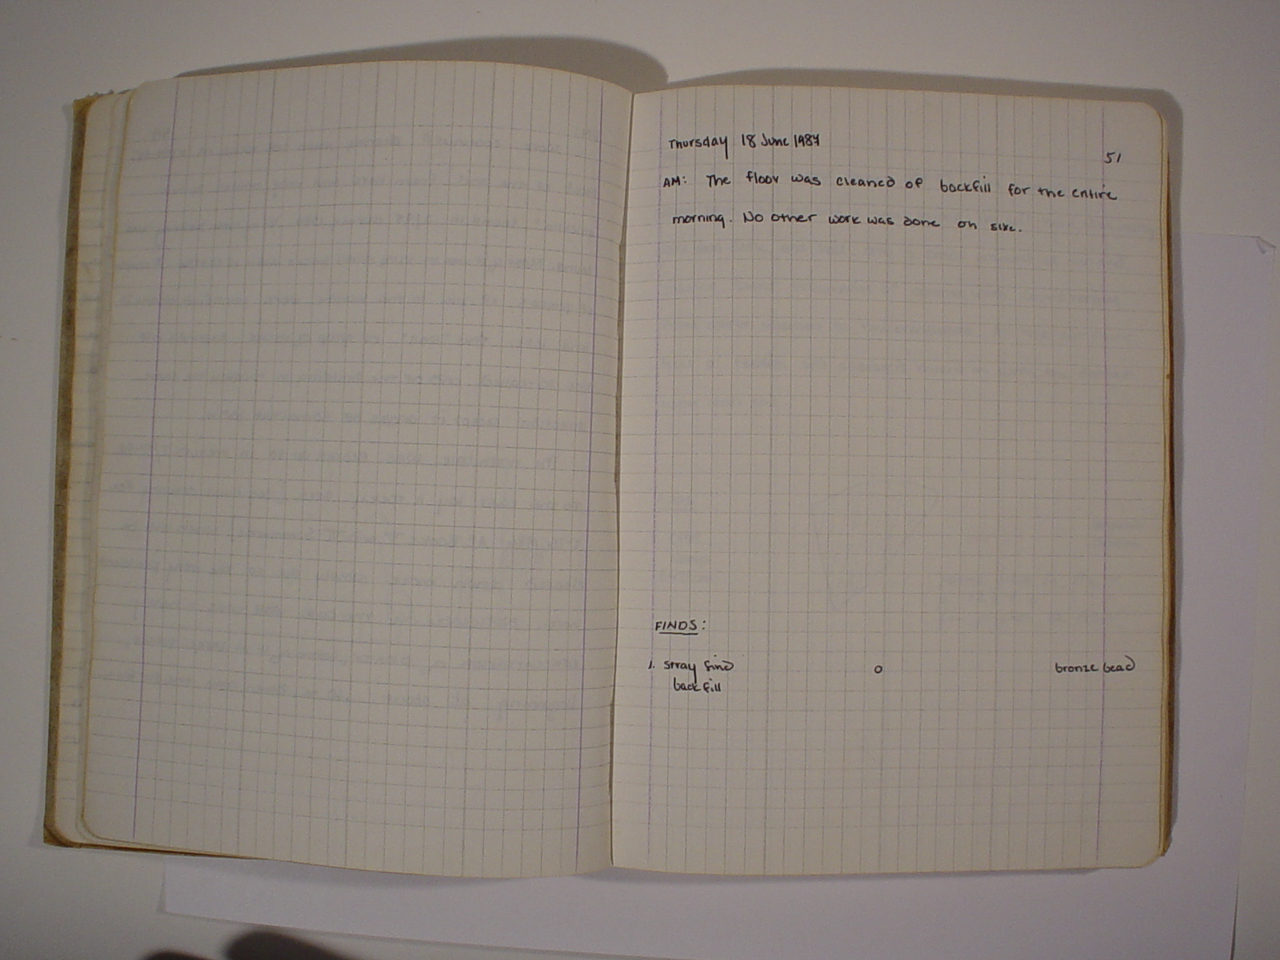 Thursday 18 June 1987
51
AM: The floor was cleaned of backfill for the entire
morning. No other work was done on site.
FINDS:
1. stray find bronze bead
backfill